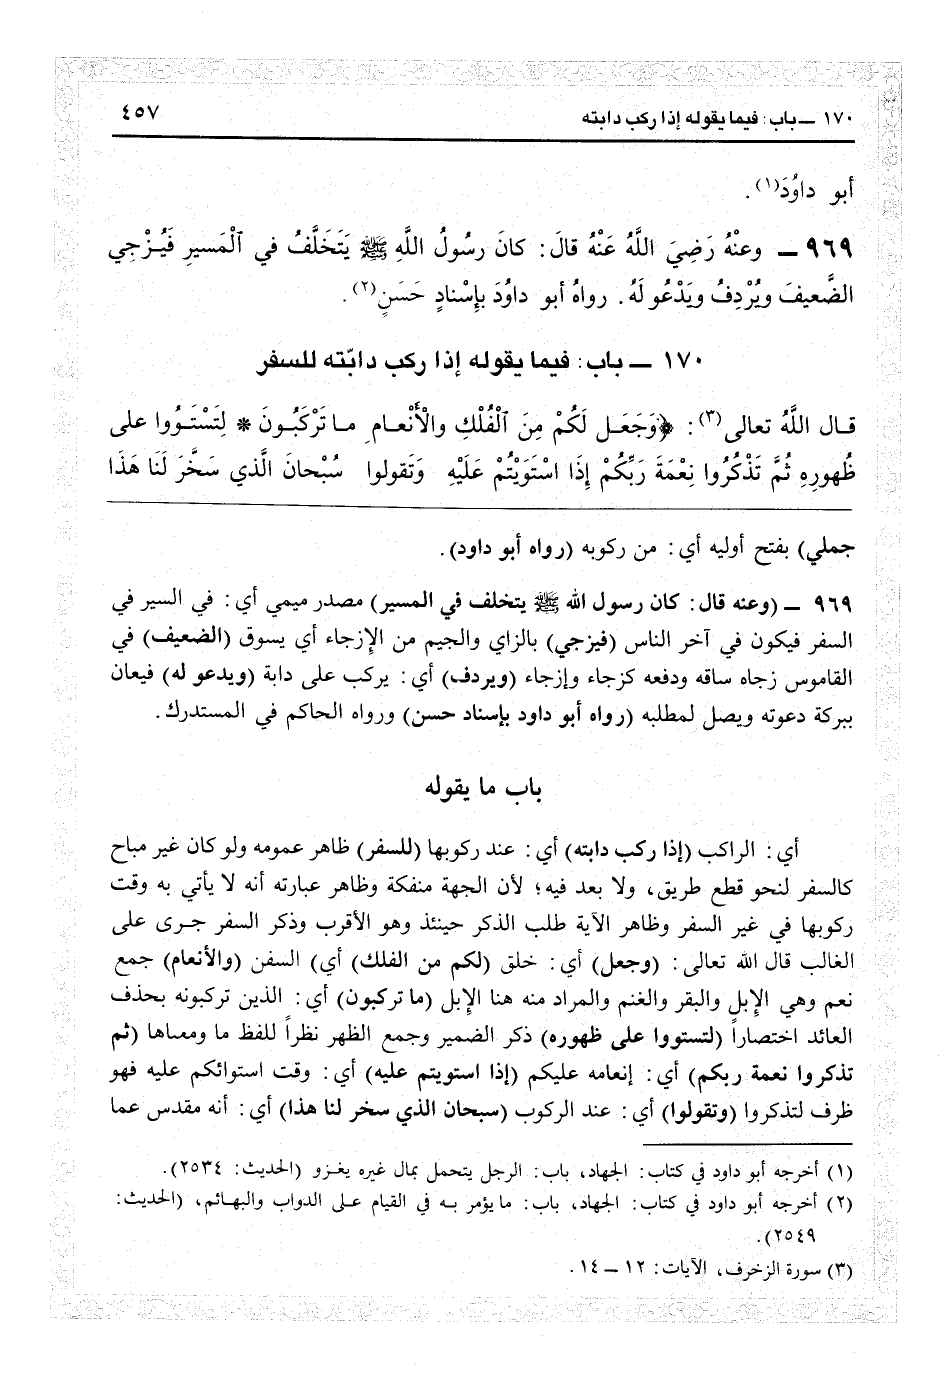 ١٧٠ ــ باب: فيما يقوله إذا ركب دابته ٤٥٧
أبو داوُدَ(١).
٩٦٩ ــ وعنْهُ رَضِيَ اللَّهُ عَنْهُ قالَ: كانَ رسُولُ اللَّهِ ﷺ يَتَخَلَّفُ في ٱلْمَسيرِ فَيُـزْجِي
الضَّعيفَ ويُرْدِفُ ويَدْعُو لَهُ. رواهُ أبو داوُدَ بإِسْنادٍ حَسَنٍ(٢).
١٧٠ ــ باب: فيما يقوله إذا ركب دابّته للسفر
قـال اللَّهُ تعالى(٣): ﴿وَجَعَـل لَكُمْ مِنَ ٱلْفُلْكِ والْأَنْعـامِ مـا تَرْكَبُـونَ * لِتَسْتَـوُوا على
ظُهورِهِ ثُمَّ تَذْكُرُوا نِعْمَةَ رَبِّكُمْ إِذَا اسْتَوَيْتُمْ عَلَيْهِ وَتَقولوا سُبْحانَ الَّذي سَخَّرَ لَنا هَذَا
جملي) بفتح أوليه أي: من ركوبه (رواه أبو داود).
٩٦٩ ــ (وعنه قال: كان رسول الله ﷺ يتخلف في المسير) مصدر ميمي أي: في السير في
السفر فيكون في آخر الناس (فيزجي) بالزاي والجيم من الإزجاء أي يسوق (الضعيف) في
القاموس زجاه ساقه ودفعه كزجاء وإزجاء (ويردف) أي: يركب على دابة (ويدعو له) فيعان
ببركة دعوته ويصل لمطلبه (رواه أبو داود بإسناد حسن) ورواه الحاكم في المستدرك.
باب ما يقوله
أي: الراكب (إذا ركب دابته) أي: عند ركوبها (للسفر) ظاهر عمومه ولو كان غير مباح
كالسفر لنحو قطع طريق، ولا بعد فيه؛ لأن الجهة منفكة وظاهر عبارته أنه لا يأتي به وقت
ركوبها في غير السفر وظاهر الآية طلب الذكر حينئذ وهو الأقرب وذكر السفر جـرى على
الغالب قال الله تعالى: (وجعل) أي: خلق (لكم من الفلك) أي) السفن (والأنعام) جمع
نعم وهي الإبل والبقر والغنم والمراد منه هنا الإبل (ما تركبون) أي: الذين تركبونه بحذف
العائد اختصاراً (لتستووا على ظهوره) ذكر الضمير وجمع الظهر نظراً للفظ ما ومعناها (ثم
تذكروا نعمة ربكم) أي: إنعامه عليكم (إذا استويتم عليه) أي: وقت استوائكم عليه فهو
ظرف لتذكروا (وتقولوا) أي: عند الركوب (سبحان الذي سخر لنا هذا) أي: أنه مقدس عما
(١) أخرجه أبو داود في كتاب: الجهاد، باب: الرجل يتحمل بمال غيره يغـزو (الحديث: ٢٥٣٤).
(٢) أخرجه أبو داود في كتاب: الجهاد، باب: ما يؤمر بـه في القيام عـلى الدواب والبهـائم، (الحديث:
٢٥٤٩).
(٣) سورة الزخرف، الآيات: ١٢ ــ ١٤.